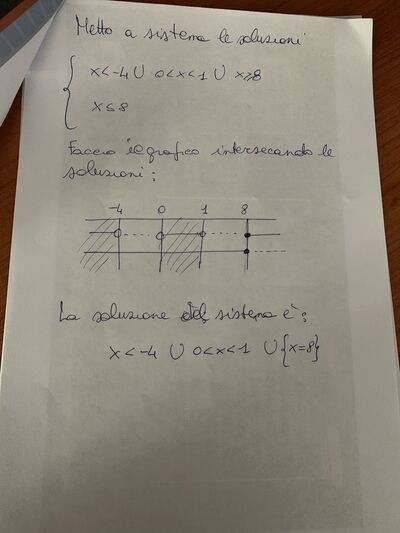 Metto a sistema le soluzioni
x<-4 ∪ 0<x<1 ∪ x⩾8
x≤8
Faccio il grafico intersecando le
soluzioni:
-4 0 1 8
La soluzione del sistema è:
x<-4 ∪ 0<x<1 ∪ {x=8}